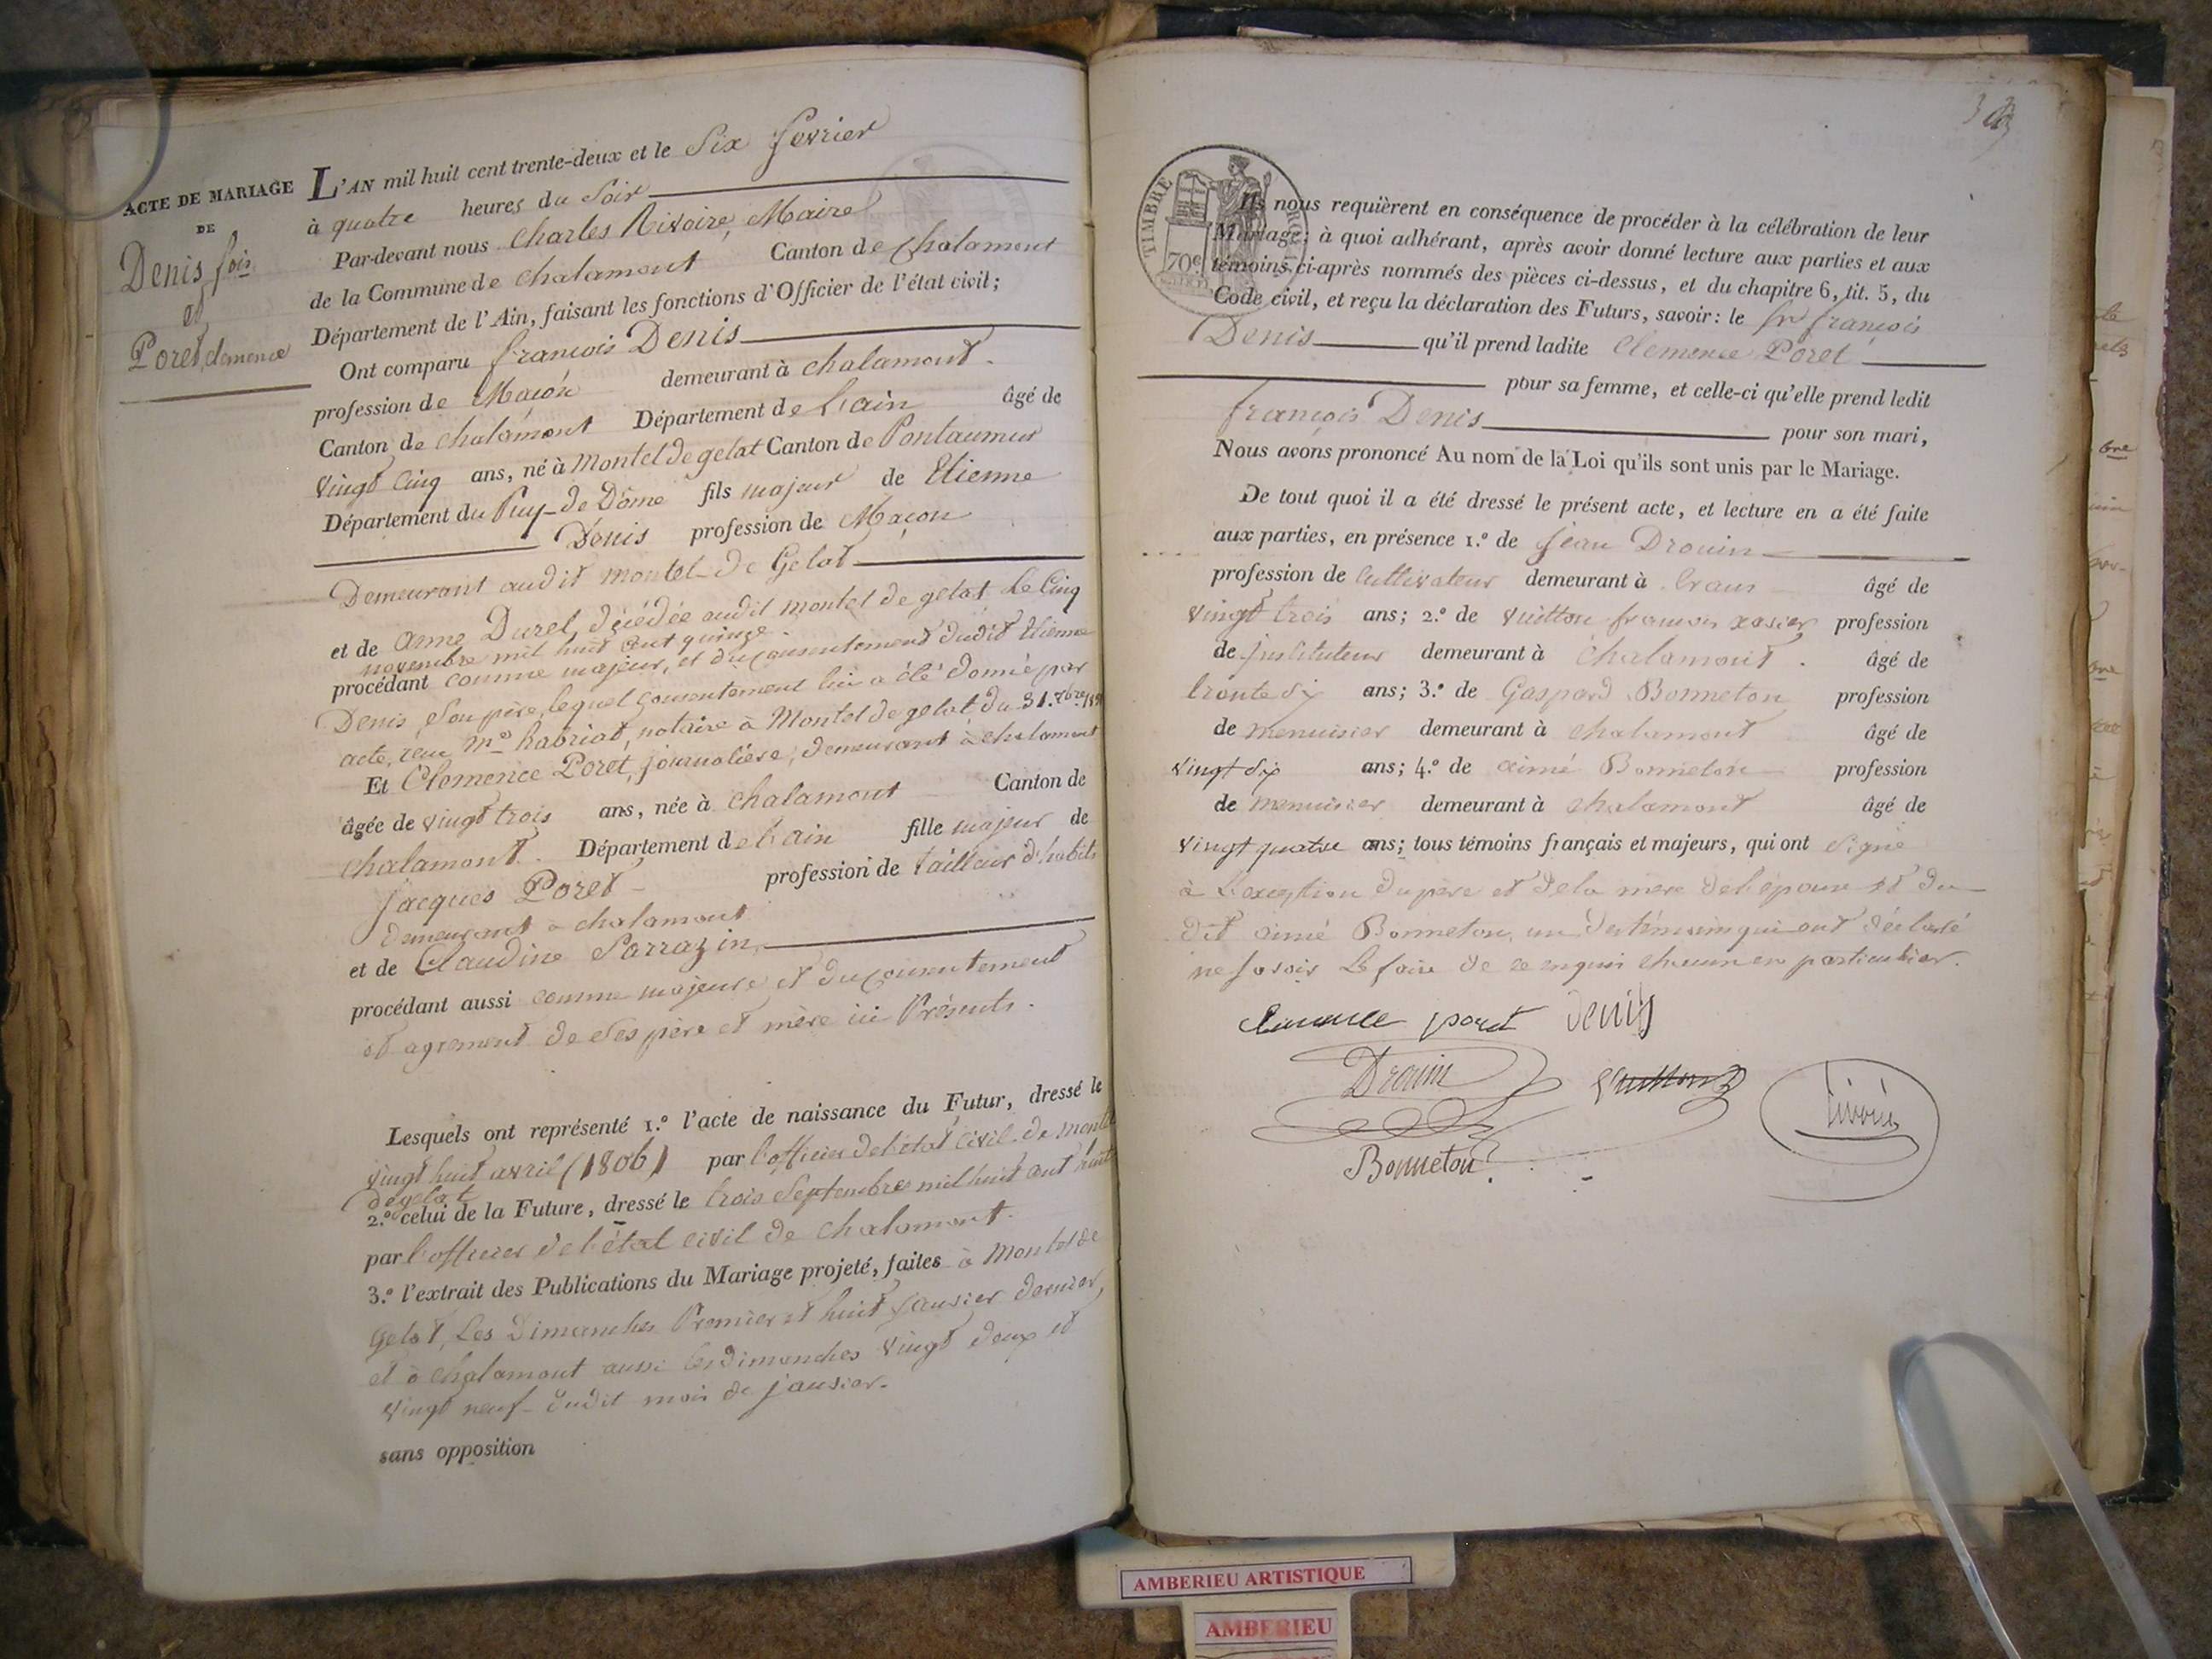 ACTE DE MARIAGE
DE
Denis fois
et
Poret, clemence
L'AN mil huit cent trente-deux et le Six fevrier
à quatre heures du Soir
Par-devant nous Charles Rivoire, Maire
de la Commune de Chalamont Canton de Chalamont
Département de l'Ain, faisant les fonctions d'Officier de l'état civil;
Ont comparu françois Denis
profession de Maçon demeurant à Chalamont.
Canton de chalamont Département de l'ain âgé de
vingt cinq ans, né à Montel de gelat Canton de Pontaumur
Département du Puy-de Dôme fils majeur de Etienne
Denis profession de Maçon
Demeurant audit montel-de Gelat
et de anne Durel, décédée audit montel de gelat le Cinq
novembre mil huit cent quinze.
procédant comme majeur, et du consentement dudit Etienne
Denis, Son père, lequel consentement lui a été donné par
acte, reçu Me habriat, notaire à Montel de gelat du 31. Xbre
Et Clemence Poret, journalière, demeurant à chalamont
âgée de vingt trois ans, née à Chalamont Canton de
chalamont. Département de l'ain fille majeur de
Jacques Poret profession de tailleur d'habits
demeurant à chalamont
et de Claudine Sarrazin
procédant aussi comme majeure et du consentement
et agrement de Ses père et mère ici Présents.
Lesquels ont représenté 1.º l'acte de naissance du Futur, dressé le
vingt huit avril (1806) par l'officier de l'état civil de montel
de gelat
2.º celui de la Future, dressé le trois Septembre mil huit cent huit
par l'officier de l'état civil de chalamont.
3.º l'extrait des Publications du Mariage projeté, faites à Montel de
Gelat, Les Dimanches Premier et huit janvier dernier,
et à chalamont aussi les dimanches vingt deux et
vingt neuf dudit mois de janvier.
sans opposition
TIMBRE ROYAL
70c
Ils nous requièrent en conséquence de procéder à la célébration de leur
Mariage; à quoi adhérant, après avoir donné lecture aux parties et aux
témoins ci-après nommés des pièces ci-dessus, et du chapitre 6, tit. 5, du
Code civil, et reçu la déclaration des Futurs, savoir: le sr françois
Denis qu'il prend ladite Clemence Poret
pour sa femme, et celle-ci qu'elle prend ledit
françois Denis pour son mari,
Nous avons prononcé Au nom de la Loi qu'ils sont unis par le Mariage.
De tout quoi il a été dressé le présent acte, et lecture en a été faite
aux parties, en présence 1.º de Jean Drouin
profession de Cultivateur demeurant à Crans âgé de
vingt trois ans; 2.º de Vuitton françois xavier profession
de Instituteur demeurant à Chalamont. âgé de
trente six ans; 3.º de Gaspard Bonneton profession
de menuisier demeurant à Chalamont âgé de
vingt six ans; 4.º de aimé Bonneton profession
de menuisier demeurant à chalamont âgé de
vingt quatre ans; tous témoins français et majeurs, qui ont Signé
à l'exception du père et de la mère de l'épouse et du
dit aimé Bonneton, un des témoins qui ont déclaré
ne savoir le faire de ce enquis chacun en particulier.
clemence poret Denis
Drouin Vuitton Rivoire
Bonneton
AMBERIEU ARTISTIQUE
AMBERIEU